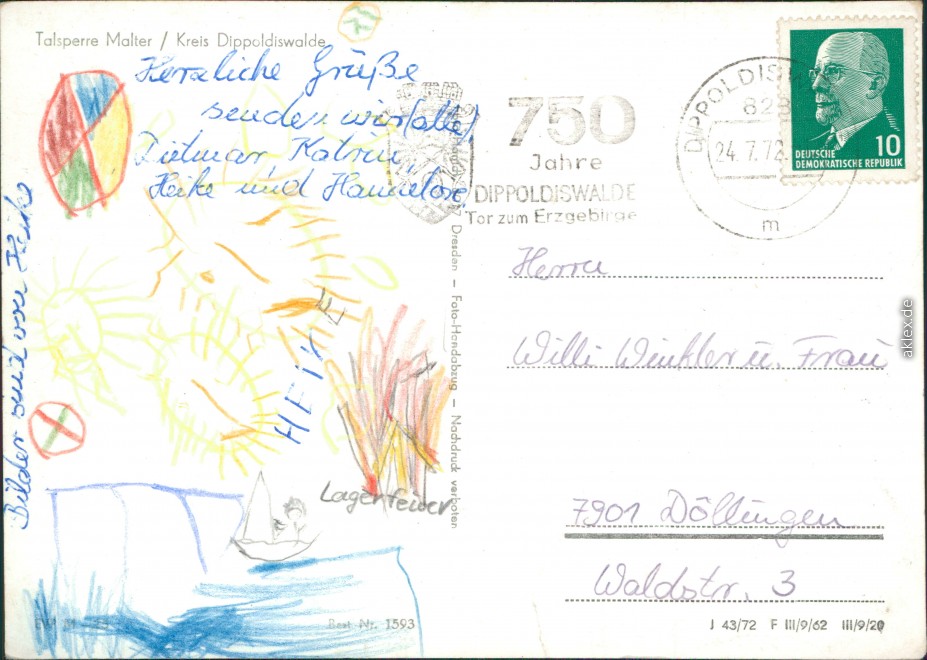 Talsperre Malter / Kreis Dippoldiswalde
Herzliche Grüße
senden wir (alle)
Dietmar Katrin
Heike und Hannelore
Bilder sind von Heike
HEIKE
Lagerfeuer
Best. Nr. 1593
Dresden – Foto-Handabzug – Nachdruck verboten
750
Jahre
DIPPOLDISWALDE
Tor zum Erzgebirge
DIPPOLDISW
828
24.7.72
m
10
DEUTSCHE
DEMOKRATISCHE REPUBLIK
Herrn
Willi Winkler u. Frau
7901 Döllingen
Waldstr. 3
J 43/72 F III/9/62 III/9/20
aklex.de